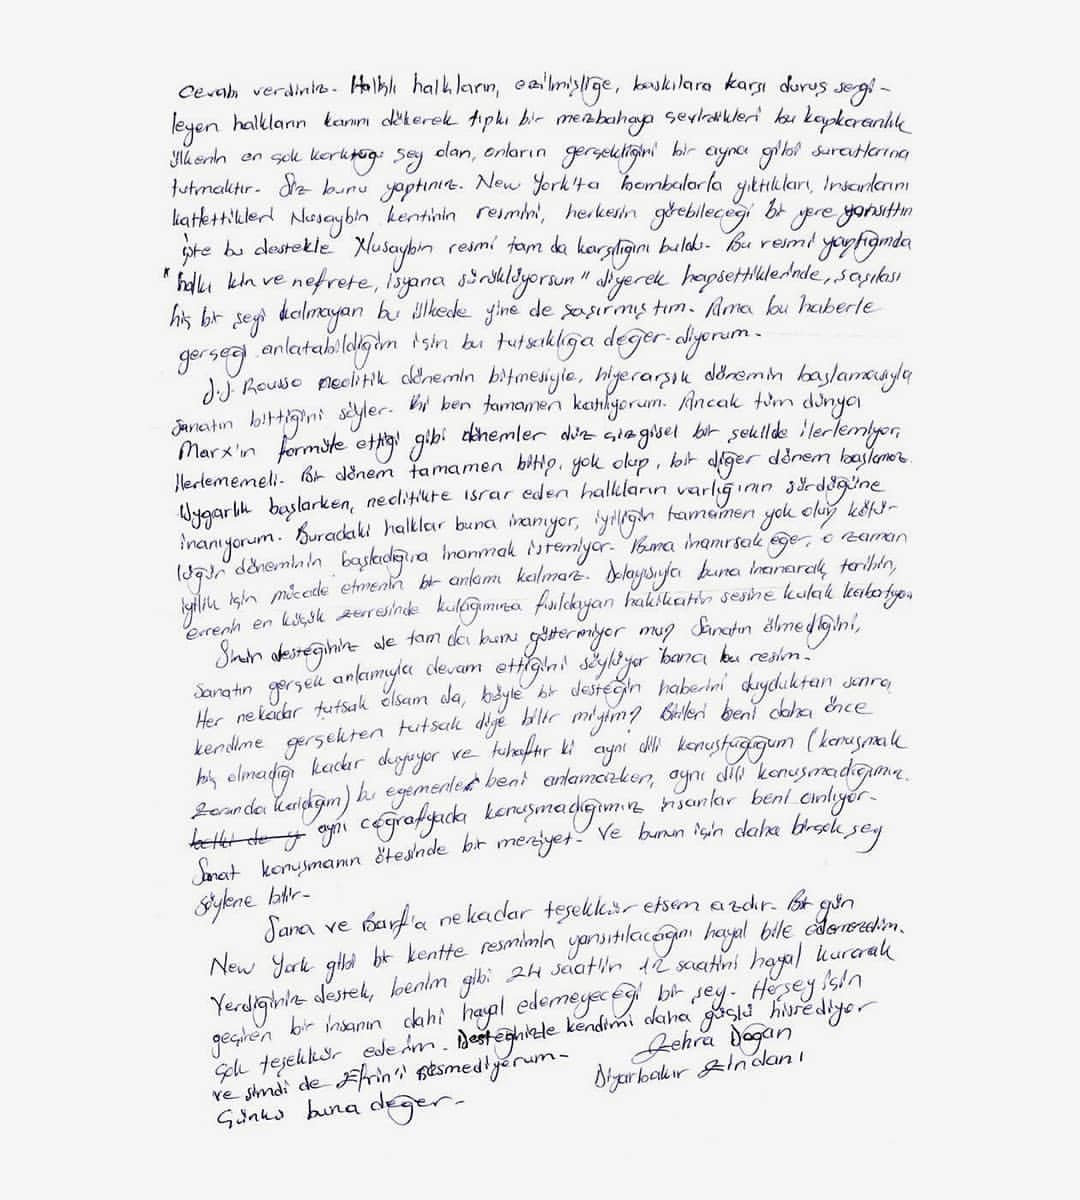 cevabı verdiniz. Haklı halkların, ezilmişliğe, baskılara karşı duruş sergi-
leyen halkların kanını dökerek tıpkı bir mezbahaya çevirdikleri bu kapkaranlık
ülkenin en çok korktuğu şey olan, onların gerçekliğini bir ayna gibi suratlarına
tutmaktır. Siz bunu yaptınız. New York'ta bombalarla yıktıkları, insanlarını
katlettikleri Nusaybin kentinin resmini, herkesin görebileceği bir yere yansıttın
işte bu destekle Nusaybin resmi tam da karşılığını buldu. Bu resmi yaptığımda
"halkı kin ve nefrete, isyana sürüklüyorsun" diyerek hapsettiklerinde, şaşılası
hiç bir şeyi kalmayan bu ülkede yine de şaşırmıştım. Ama bu haberle
gerçeği anlatabildiğim için bu tutsaklığa değer diyorum.
J.J. Rousso neolitik dönemin bitmesiyle, hiyerarşik dönemin başlamasıyla
sanatın bittiğini söyler. Ki ben tamamen katılıyorum. Ancak tüm dünya
Marx'ın formüle ettiği gibi dönemler düz çizgisel bir şekilde ilerlemiyor,
ilerlememeli. Bir dönem tamamen bitip, yok olup, bir diğer dönem başlamaz.
Uygarlık başlarken, neolitikte ısrar eden halkların varlığının sürdüğüne
inanıyorum. Buradaki halklar buna inanıyor, iyiliğin tamamen yok olup kötü-
lüğün döneminin başladığına inanmak istemiyor. Buna inanırsak eğer, o zaman
iyilik için mücade etmenin bir anlamı kalmaz. Dolayısıyla buna inanarak tarihin,
evrenin en küçük zerresinde kulağımıza fısıldayan hakikatin sesine kulak kabartıyor
Sizin desteğiniz de tam da bunu göstermiyor mu? Sanatın ölmediğini,
sanatın gerçek anlamıyla devam ettiğini söylüyor bana bu resim.
Her nekadar tutsak olsam da, böyle bir desteğin haberini duyduktan sonra
kendime gerçekten tutsak diye bilir miyim? Birileri beni daha önce
hiç olmadığı kadar duyuyor ve tuhaftır ki aynı dili konuştuğugum (konuşmak
zorunda kaldığım) bu egemenler beni anlamazken, aynı dili konuşmadığımız,
belki de y aynı coğrafyada konuşmadığımız insanlar beni anlıyor.
Sanat konuşmanın ötesinde bir meziyet. Ve bunun için daha birçok şey
söylene bilir.
Sana ve Borf'a nekadar teşekkür etsem azdır. Bir gün
New York gibi bir kentte resmimin yansıtılacağını hayal bile edemezdim.
Verdiğiniz destek, benim gibi 24 saatiin 12 saatini hayal kurarak
geçiren bir insanın dahi hayal edemeyeceği bir şey. Herşey için
çok teşekkür ederim. Desteğinizle kendimi daha güçlü hissediyor
ve şimdi de Efrin'i resmediyorum.
Çünkü buna değer.
Zehra Doğan
Diyarbakır Zindanı